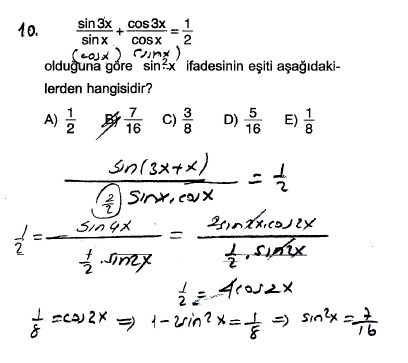 10. sin3x/sinx + cos3x/cosx = 1/2
(cosx) (sinx)
olduğuna göre sin²x ifadesinin eşiti aşağıdaki-
lerden hangisidir?
A) 1/2 B) 7/16 C) 3/8 D) 5/16 E) 1/8
sin(3x+x) / (2/2) sinx.cosx = 1/2
1/2 = sin4x / 1/2 . sin2x = 2sin2x.cos2x / 1/2 . sin2x
1/2 = 4cos2x
1/8 = cos2x ⇒ 1-2sin²x = 1/8 ⇒ sin²x = 7/16